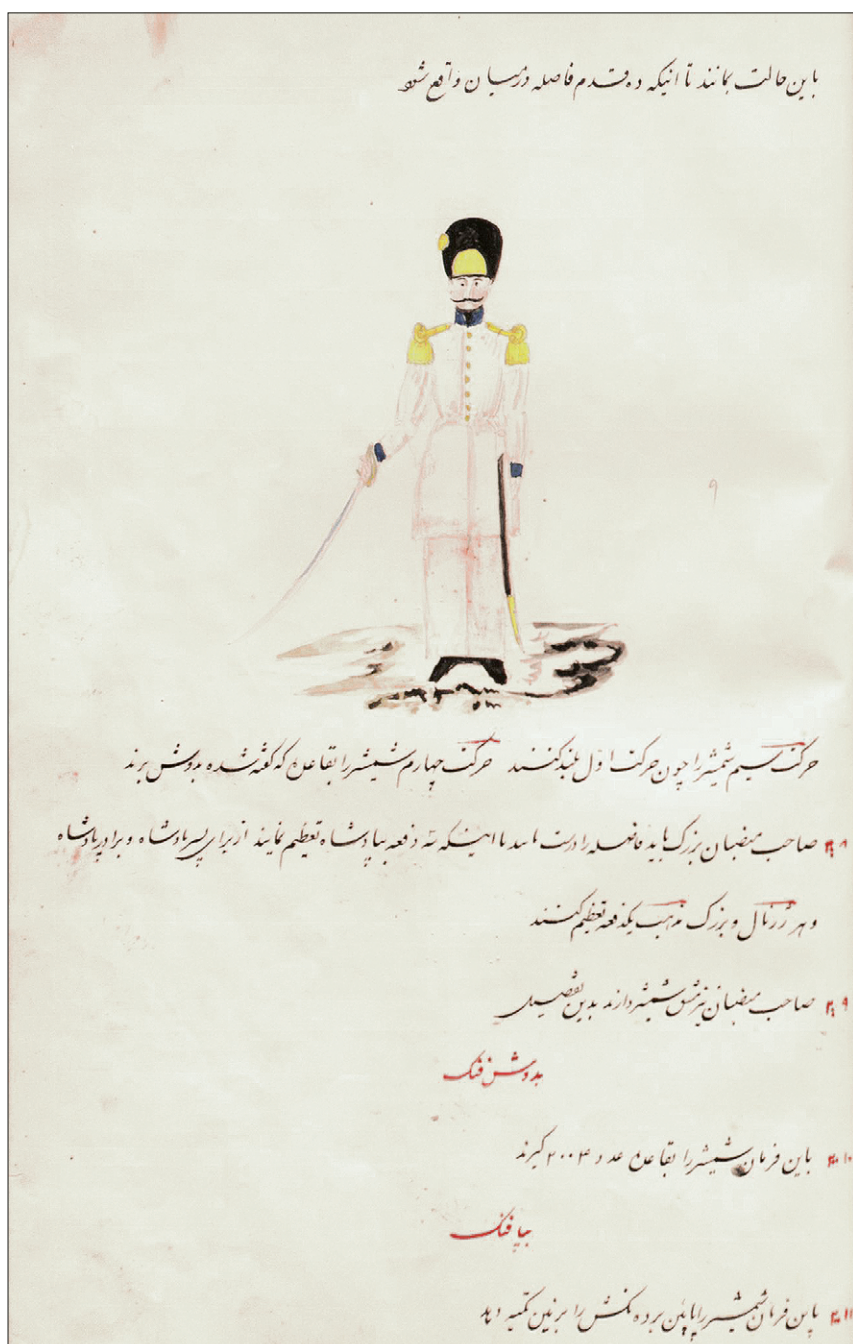 باین حالت بمانند تا انیکه ده قدم فاصله در میان واقع شود
۹
حرکت سیم شمشیر را چون حرکت اول بلند کنند حرکت چهارم شمشیر را بقاعدۀ که گفته شده بدوش برند
صاحب منصبان بزرگ باید فاصله را درست با اینکه سه دفعه بپادشاه تعظیم نمایند از برای پسر پادشاه و برادر پادشاه
و هر ژرنال و بزرگ مذهب یکدفعه تعظیم کنند
صاحب منصبان نیز مشق شمشیر دارند بدین تفصیل
بدوش فنک
باین فرمان شمشیر را بقاعدۀ عدد ۲۰۰۳ گیرند
بپا فنک
باین فرمان شمشیر را پائین برده نکش را بر زمین تکیه دهد